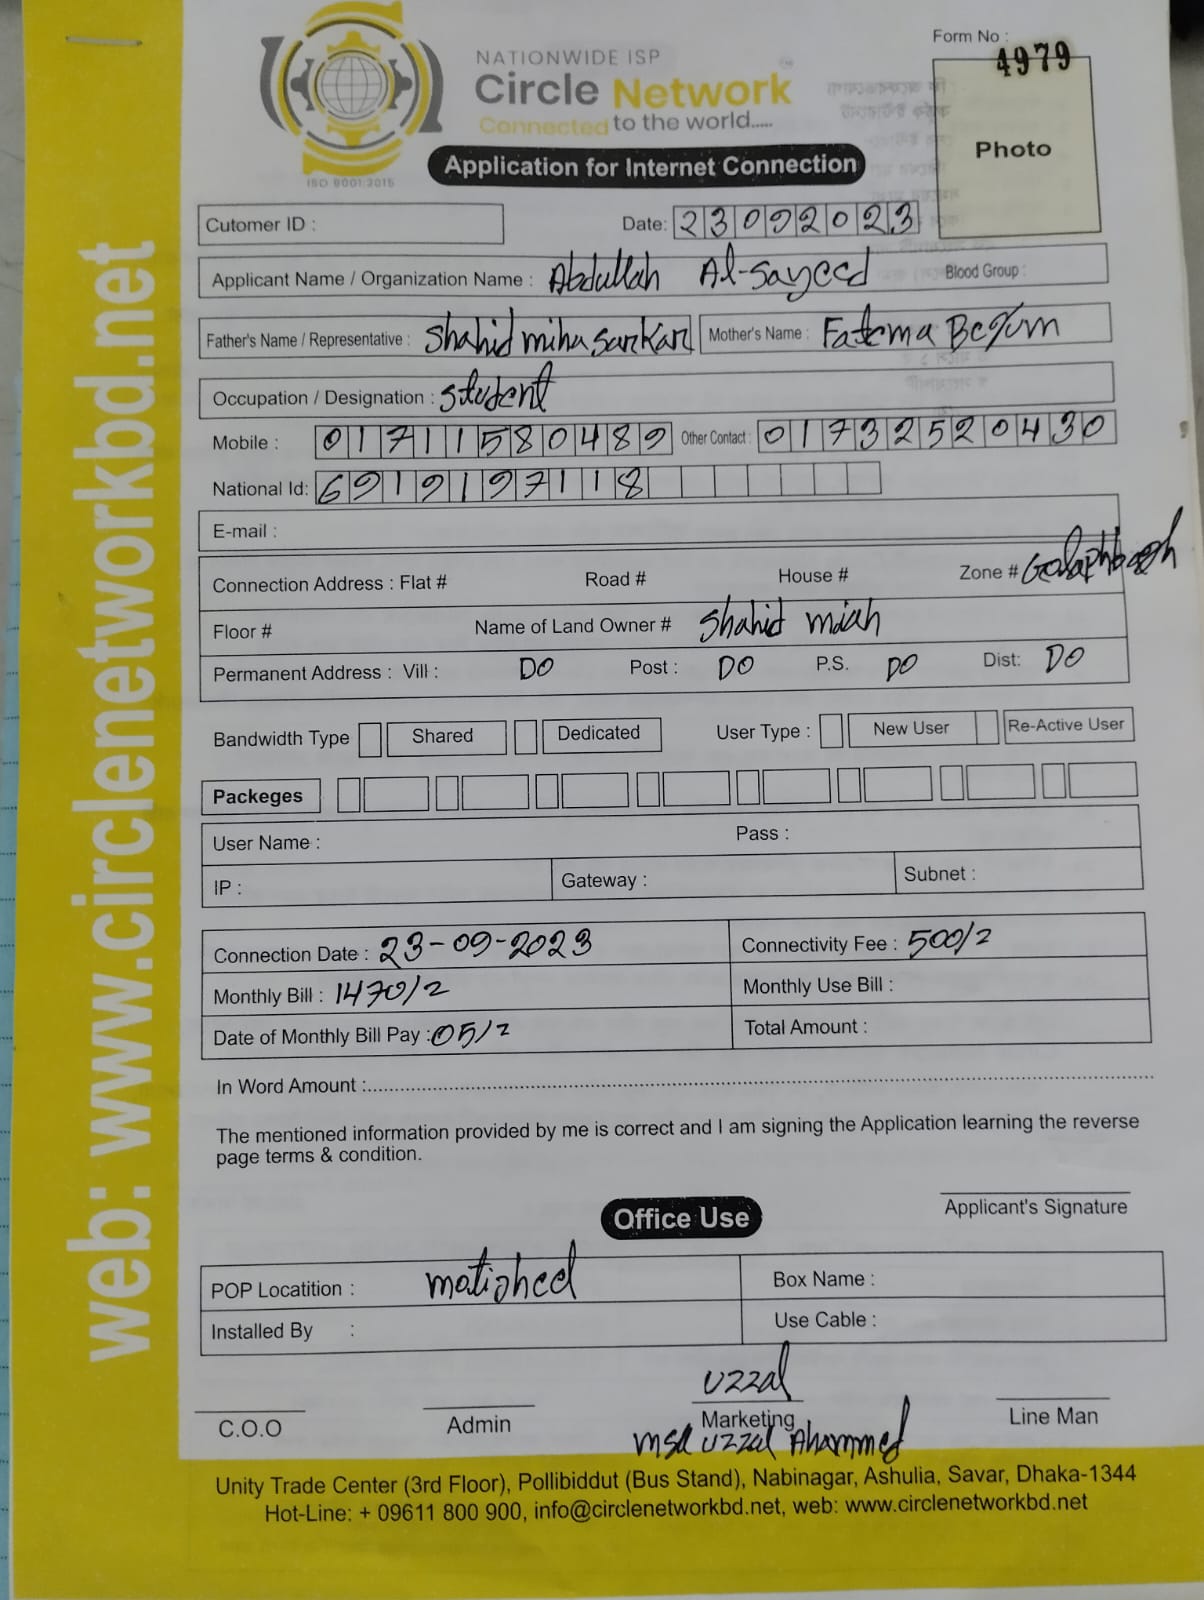 Form No :
4979
NATIONWIDE ISP
Circle Network
Connected to the world.....
ISO 9001:2015
Application for Internet Connection
Photo
Cutomer ID :
Date: 23092023
Applicant Name / Organization Name : Abdullah Al-Sayeed Blood Group :
Father's Name / Representative : Shahid miha Sarkar Mother's Name : Fatema Begum
Occupation / Designation : Student
Mobile : 01711580489 Other Contact : 01732520430
National Id: 6919197118
E-mail :
Connection Address : Flat # Road # House # Zone # Golaphbagh
Floor # Name of Land Owner # Shahid miah
Permanent Address : Vill : DO Post : DO P.S. DO Dist: DO
Bandwidth Type Shared Dedicated User Type : New User Re-Active User
Packeges
User Name : Pass :
IP : Gateway : Subnet :
Connection Date : 23-09-2023 Connectivity Fee : 500/2
Monthly Bill : 1470/2 Monthly Use Bill :
Date of Monthly Bill Pay : 05/2 Total Amount :
In Word Amount :
The mentioned information provided by me is correct and I am signing the Application learning the reverse
page terms & condition.
Applicant's Signature
Office Use
POP Locatition : matigheel Box Name :
Installed By : Use Cable :
Uzzal
C.O.O Admin Marketing Line Man
Msd Uzzal Ahammed
Unity Trade Center (3rd Floor), Pollibiddut (Bus Stand), Nabinagar, Ashulia, Savar, Dhaka-1344
Hot-Line: + 09611 800 900, info@circlenetworkbd.net, web: www.circlenetworkbd.net
web: www.circlenetworkbd.net